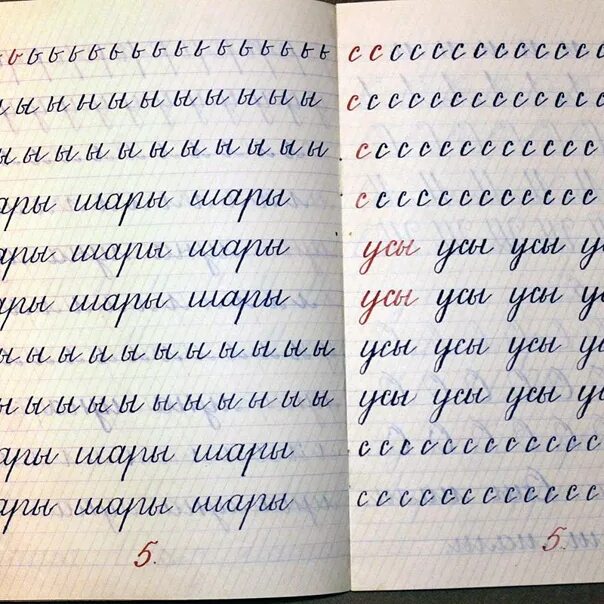 ь ь ь ь ь ь ь ь ь ь ь ь ь ь ь ь
ы ы ы ы ы ы ы ы ы ы
ы ы ы ы ы ы ы ы ы ы ы
ары шары шары
ары шары шары
ары шары шары
ы ы ы ы ы ы ы ы ы ы ы
ы ы ы ы ы ы ы ы ы ы ы
ары шары шары
ары шары шары
5.
с с с с с с с с с с с с с с
с с с с с с с с с с с с с с
с с с с с с с с с с с с с
с с с с с с с с с с с с с
усы усы усы ус
усы усы усы ус
усы усы усы ус
усы усы усы ус
с с с с с с с с с с с с с
с с с с с с с с с с с с с
5.